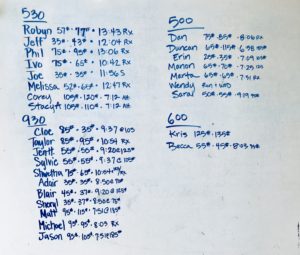 530
Robyn 57# · 77# · 13:43 Rx
Jeff 35# · 43# · 12:04 Rx
Phil 75# · 95# · 13:06 Rx
Ivo 75# · 65# · 10:42 Rx
Joe 35# · 35# · 11:56 S
Melissa 52# · 65# · 12:47 Rx
Corey 105# · 120# · 7:12
Stacy 105# · 110# · 7:12
930
Cloe 85# · 35# · 9:37
Taylor 85# · 95# · 10:54 Rx
55# · 55# · 9:20
Sylvie 55# · 55# · 9:37
75# · 65# · 10:54 Rx
Adair 35# · 35# · 8:50
Blair 45# · 37# · 9:20
Sheryl 35# · 35# · 8:50
Matt 95# · 115# · 7:51
Michael 95# · 95# · 8:03 Rx
Jason 95# · 105# · 7:51
500
Dan 75# · 85# · 8:06 Rx
Duncan 65# · 115# · 6:58
Erin 20# · 35# · 7:09
Manon 75# · 75# · 7:25
Marta 65# · 65# · 7:51 Rx
Wendy
Sarah 50# · 55# · 9:19
600
Kris 125# · 135#
Becca 55# · 45# · 8:03